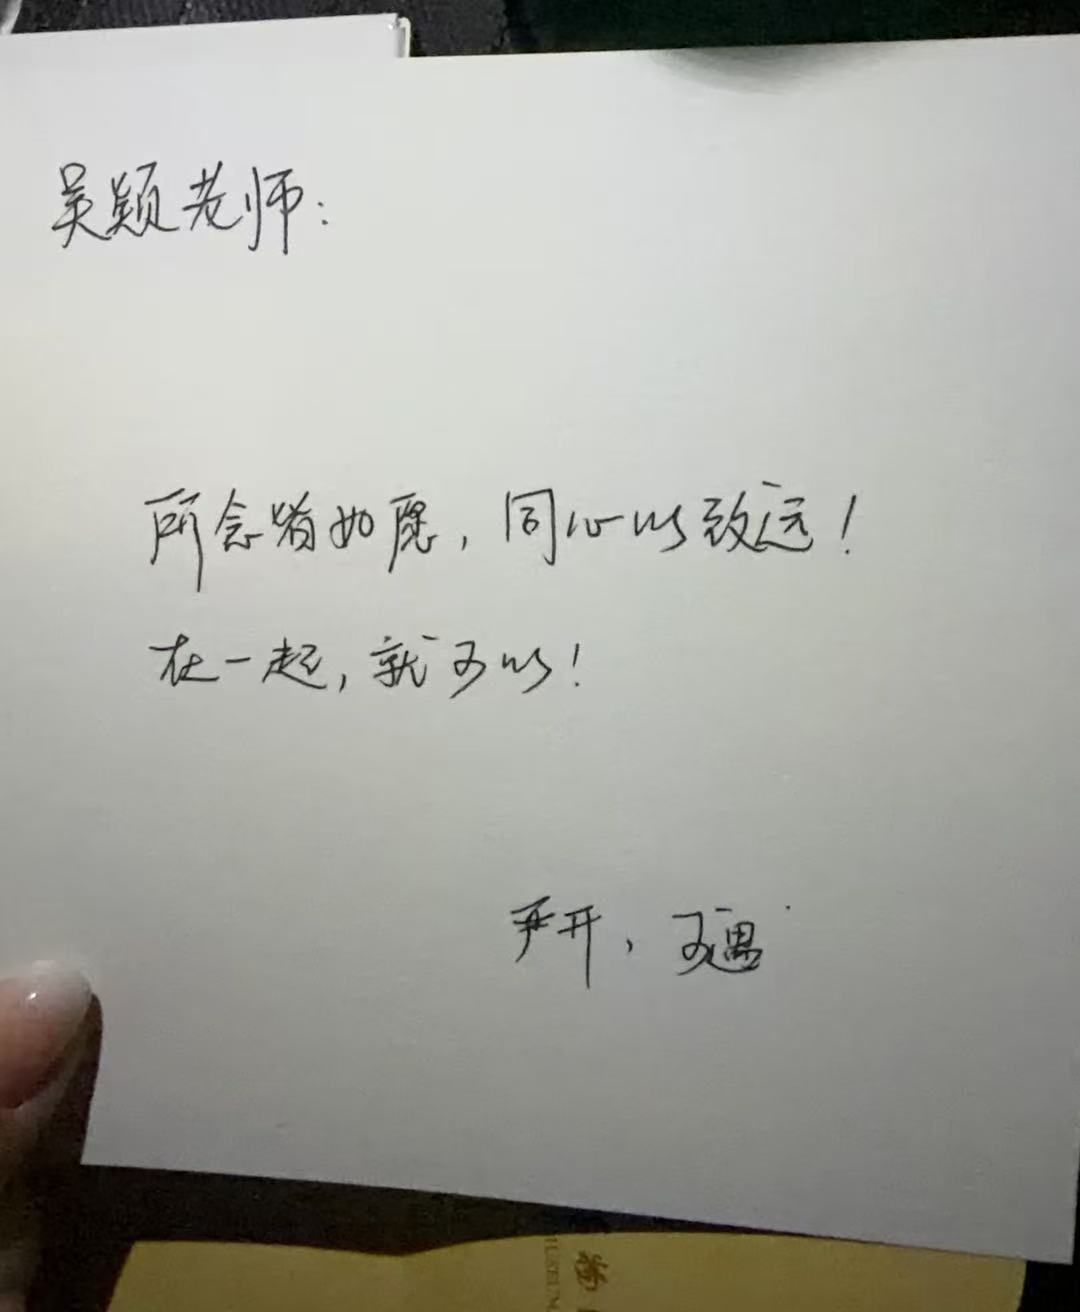 吴颖老师：
所念皆如愿，同心以致远！
在一起，就可以！
尹开，可遇